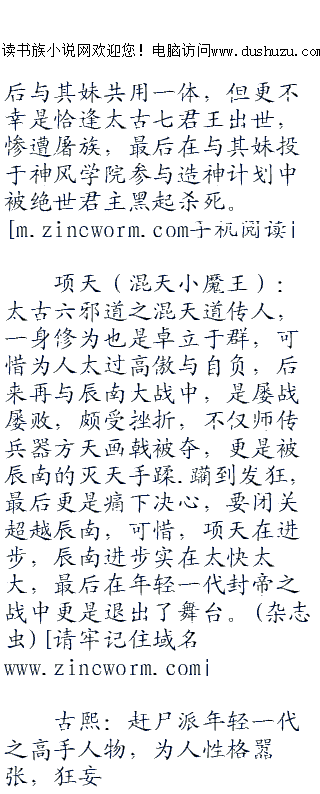 读书族小说网欢迎您！电脑访问www.dushuzu.com
后与其妹共用一体，但更不
幸是恰逢太古七君王出世，
惨遭屠族，最后在与其妹投
于神风学院参与造神计划中
被绝世君主黑起杀死。
[m.zincworm.com手机阅读|
项天（混天小魔王）：
太古六邪道之混天道传人，
一身修为也是卓立于群，可
惜为人太过高傲与自负，后
来再与辰南大战中，是屡战
屡败，颇受挫折，不仅师传
兵器方天画戟被夺，更是被
辰南的灭天手蹂.躏到发狂，
最后更是痛下决心，要闭关
超越辰南，可惜，项天在进
步，辰南进步实在太快太
大，最后在年轻一代封帝之
战中更是退出了舞台。(杂志
虫)[请牢记住域名
www.zincworm.com|
古熙：赶尸派年轻一代
之高手人物，为人性格嚣
张，狂妄